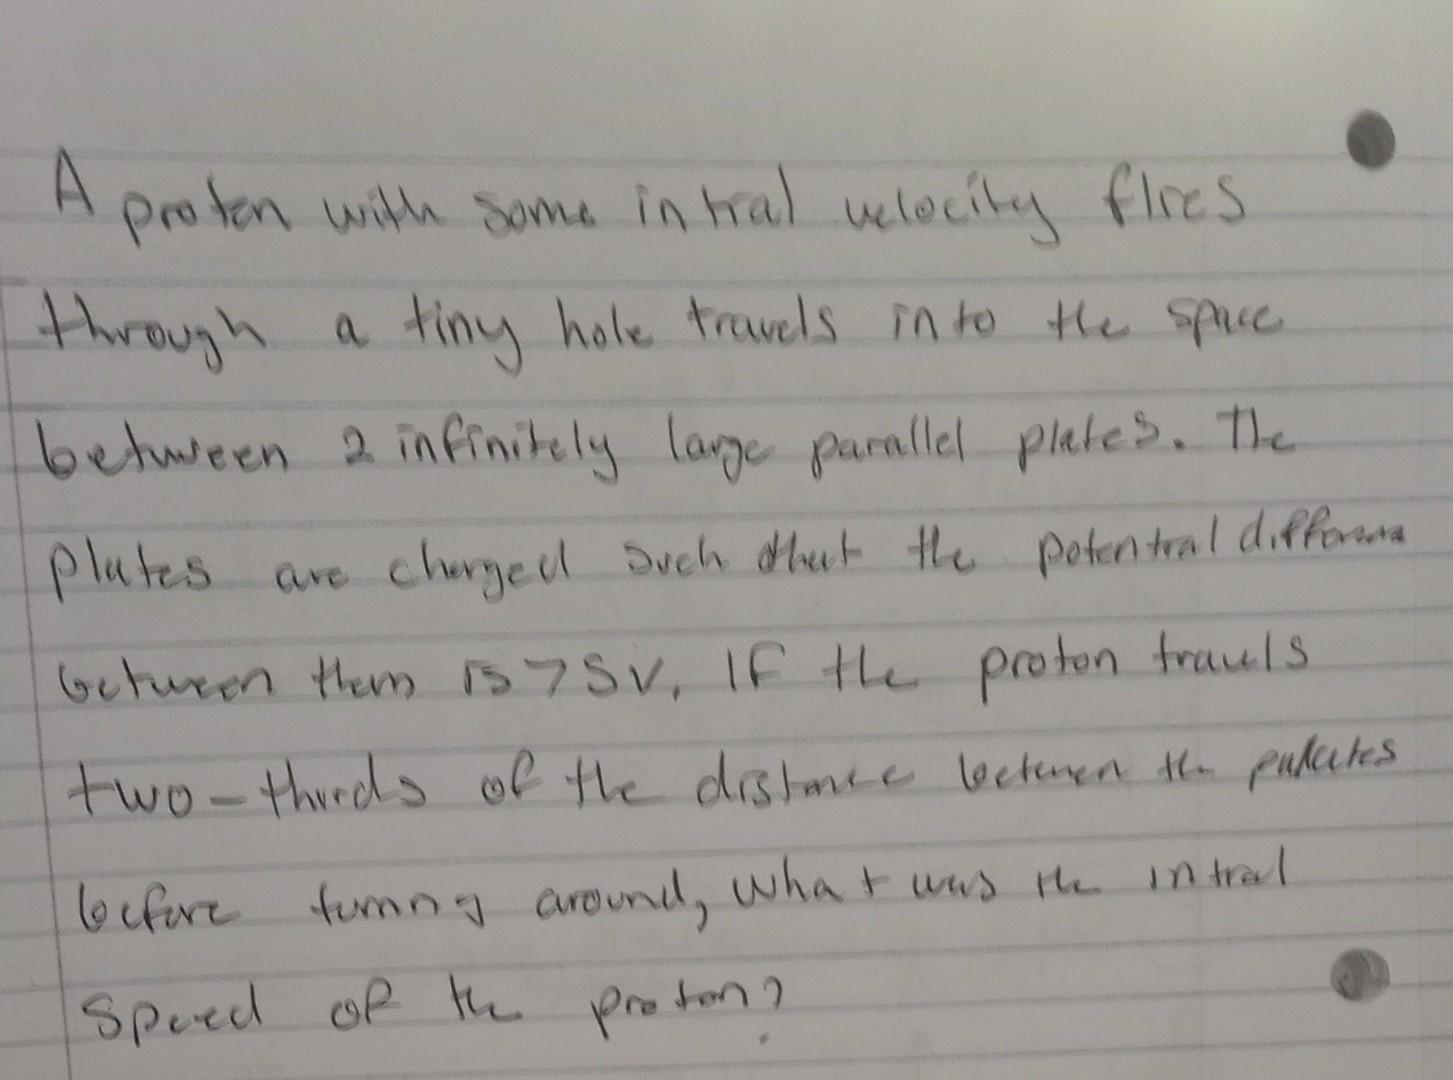 A proton with some intial velocity flies
through a tiny hole travels into the space
between 2 infinitely large parallel plates. The
plates are charged such that the potential difference
between them is 75V. If the proton travels
two-thirds of the distance between the
before turning around, what was the intial
speed of the proton?